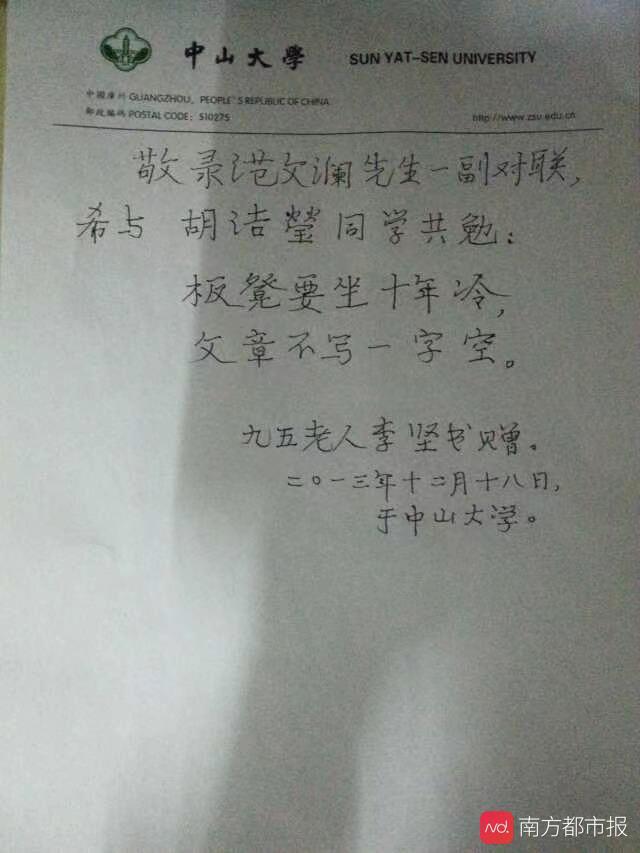 中山大學 SUN YAT-SEN UNIVERSITY
中國廣州 GUANGZHOU, PEOPLE'S REPUBLIC OF CHINA
郵政編碼 POSTAL CODE: 510275 http://www.zsu.edu.cn
敬录范文澜先生一副对联,
希与 胡洁莹同学共勉:
板凳要坐十年冷,
文章不写一字空。
九五老人李坚书赠。
二〇一三年十二月十八日,
于中山大学。
南方都市报